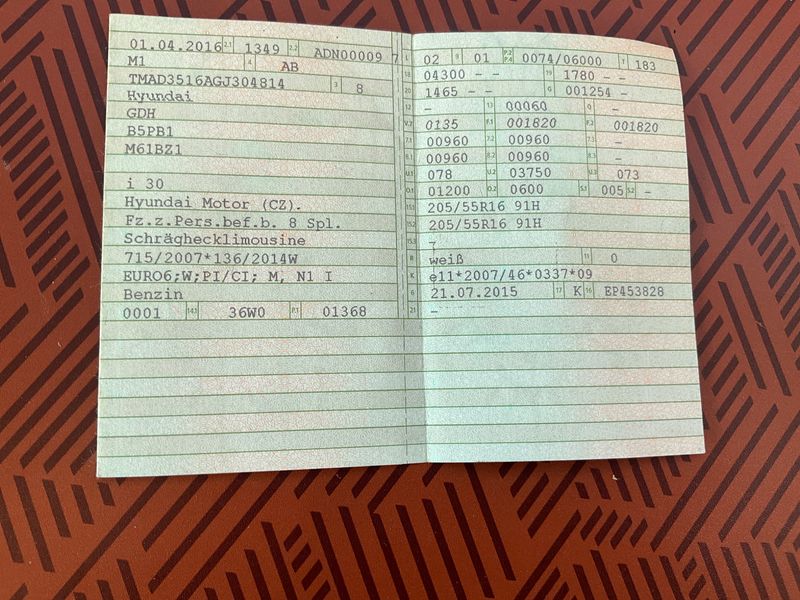 01.04.2016 2.1 1349 2.2 ADN00009 7
M1 4 AB
TMAD3516AGJ304814 3 8
Hyundai
GDH
B5PB1
M61BZ1
i 30
Hyundai Motor (CZ).
Fz.z.Pers.bef.b. 8 Spl.
Schräghecklimousine
715/2007*136/2014W
EURO6;W;PI/CI; M, N1 I
Benzin
0001 14.1 36W0 P.1 01368
02 9 01 P.2 P.4 0074/06000 T 183
18 04300 - - 19 1780 - -
20 1465 - - G 001254 -
12 - 13 00060 Q -
V.7 0135 F.1 001820 F.2 001820
7.1 00960 7.2 00960 7.3 -
8.1 00960 8.2 00960 8.3 -
U.1 078 U.2 03750 U.3 073
O.1 01200 O.2 0600 S.1 005 S.2 -
15.1 205/55R16 91H
15.2 205/55R16 91H
15.3 -
R weiß 11 0
K e11*2007/46*0337*09
6 21.07.2015 17 K 16 EP453828
21 -